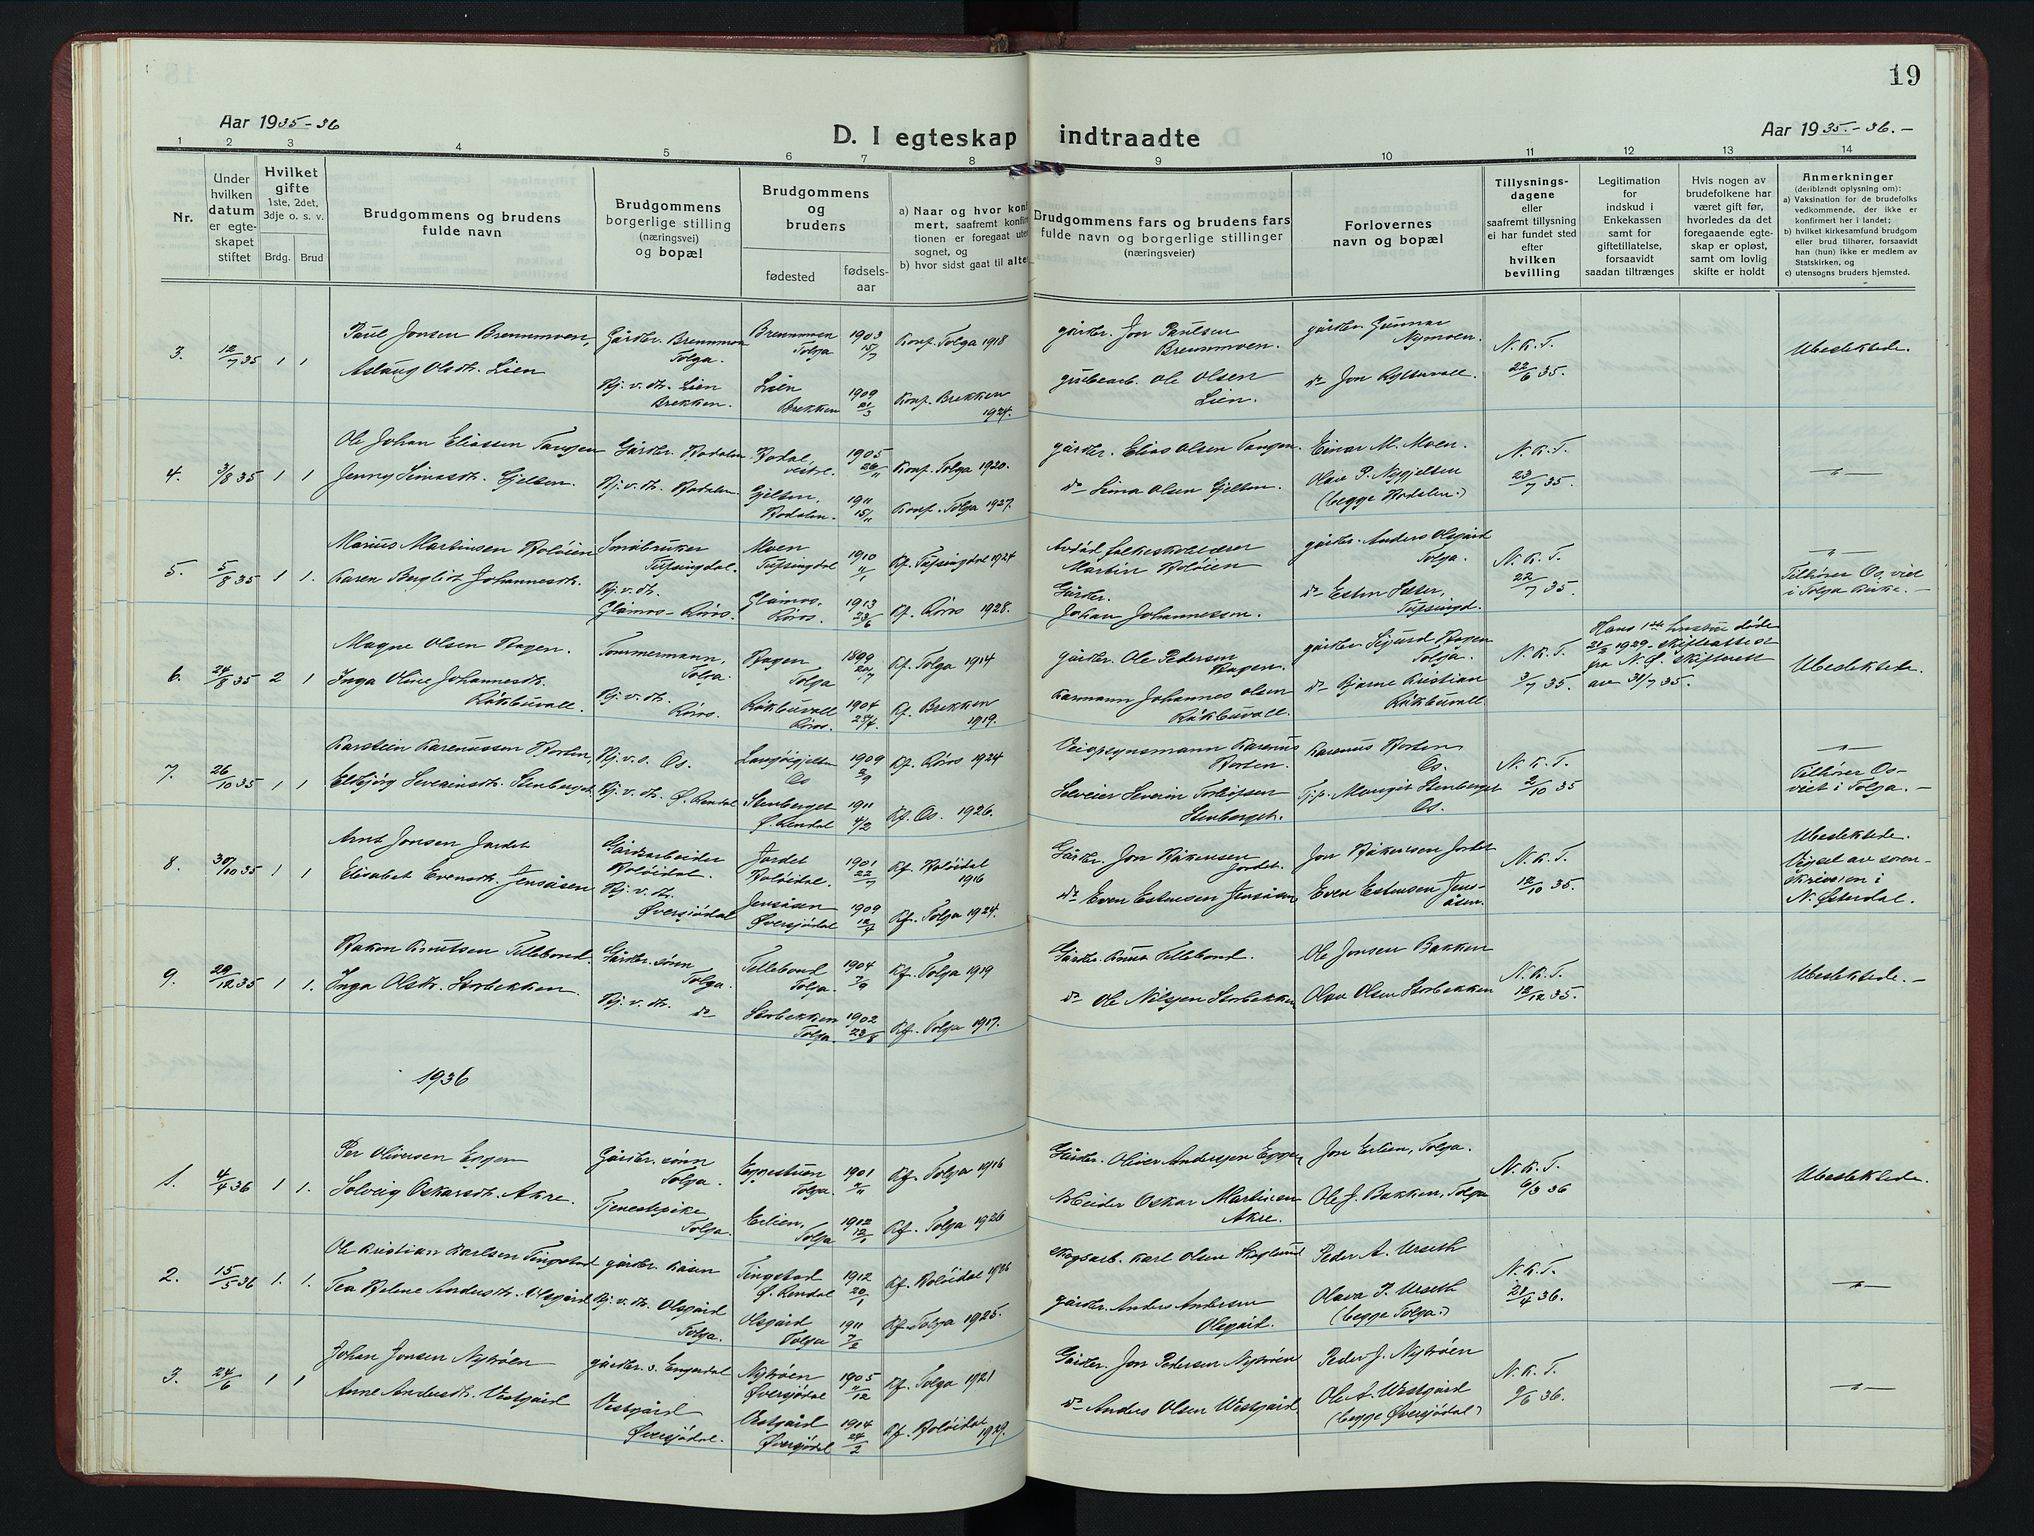 19
Aar 1935-36
D. I egteskap indtraadte
Aar 1935.-36.-
1 2 3 4 5 6 7 8 9 10 11 12 13 14
Nr.
Under hvilken datum er egteskapet stiftet
Hvilket gifte 1ste, 2det, 3dje o. s. v.
Brdg. Brud
Brudgommens og brudens fulde navn
Brudgommens borgerlige stilling (næringsvei) og bopæl
Brudgommens og brudens
fødested
fødsels-aar
a) Naar og hvor konf
mert, saafremt konfirm
tionen er foregaat uten
sognet, og
b) hvor sidst gaat til alte
Brudgommens fars og brudens fars
fulde navn og borgerlige stillinger
(næringsveier)
Forlovernes
navn og bopæl
Tillysnings-
dagene
eller
saafremt tillysning
ei har fundet sted
efter
hvilken
bevilling
Legitimation
for
indskud i
Enkekassen
samt for
giftetillatelse,
forsaavidt
saadan tiltrænges
Hvis nogen av
brudefolkene har
været gift før,
hvorledes da det
foregaaende egte-
skap er opløst,
samt om lovlig
skifte er holdt
Anmerkninger
(deriblandt oplysning om):
a) Vaksination for de brudefolks
vedkommende, der ikke er
konfirmert her i landet;
b) hvilket kirkesamfund brudgom
eller brud tilhører, forsaavidt
han (hun) ikke er medlem av
Statskirken, og
c) utensogns bruders hjemsted.
3. 12/7 35 1 1 Paul Jonsen Brennmoen, Gårdbr. Brennmoen Tolga. Brennmoen Tolga 1903 15/7 Konf. Tolga 1918 gårdbr. Jon Paulsen Brennmoen. gårdbr. Gunnar Nymoen. N. K. T. 22/6 35. Ubeslektede.
Aslaug Olsdtr. Lien Hj. v. dtr. Lien Brekken. Lien Brekken 1909 21/3 Konf. Brekken 1924. Ole Olsen Lien. do Jon
4. 3/8 35 1 1 Ole Johan Eliassen Tangen Gårdbr. Hodalen Hodal, vestre. 1905 26/11 Konf. Tolga 1920. gårdbr. Elias Olsen Tangen. Einar M. Moen. N. K. T. 23/7 35. -"-
Jenny Simasdtr. Gjelten. Hj. v. dtr. Hodalen. Gjelten, Hodalen. 1911 15/11 Konf. Tolga 1927. do Sima Olsen Gjelten. Olav P. Nygjelten (begge Hodalen.)
5. 5/8 35 1 1. Marius Martinsen Holøien Småbruker Tufsingdal. Moen Tufsingdal 1910 11/1 Kf. Tufsingdal 1924 Avdød folkeskolelærer Martin Holøien gårdbr. Anders Olsgård Tolga. N. K. T. 22/7 35. -"-
Karen Berglit Johannesdtr. Hj. v. dtr. Glåmos - Røros. Glåmos. Røros. 1913 23/6 Kf. Røros 1928. Gårdbr. Johan Johannessen. do Esten Tufsingd. Tilhører Os, viet i Tolga kirke. -
6. 24/8 35 2 1 Magne Olsen Hagen. Tømmermann, Tolga. Hagen Tolga 1899 20/7 Kf. Tolga 1914 gårdbr. Ole Pedersen Hagen. gårdbr. Sigurd Hagen Tolga. N. K. T. 3/7 35. Hans 1ste hustru døde 21/3 1929 - skifteattest fra N. Ø. skifterett av 31/7 35. Ubeslektede.
Inga Oline Johannesdtr. Råkbuvall. Hj. v. dtr. Røros. Råkbuvall Røros. 1904 23/4. Kf. Brekken 1919. Johannes Olsen Råkbuvall. do Bjarne Kristian Råkbuvall.
7. 26/10 35 1 1 Karstein Karenussen Horten, Hj. v. s. Os. Langøigjelten Os 1909 2/9 Kf. Røros 1924 Veiopsynsmann Karenus Horten. Karenus Horten Os. N. K. T. 2/10 35 -"-
Eldbjørg Severinsdtr. Stenberget. Hj. v. dtr. Ø. Rendal Stenberget Ø. Rendal 1911 4/2 Kf. Os. 1926. Severin Torleifsen Stenberget. Margit Stenberget Os. Tilhører Os - viet i Tolga. -
8. 30/10 35 1 1 Arnt Jonsen Jordet Gårdsarbeider Holøidal. Jordet Holøidal. 1901 22/7 Kf. Holøidal 1916 Gårdbr. Jon Håkensen Jordet. Jon Håkensen Jordet N. K. T. 12/10 35. Ubeslektede.
Elisabet Evensdtr. Jensåsen Hj. v. dtr. Øversjødal Jensåsen Øversjødal 1909 12/4 Kf. Tolga 1924. do Even Estensen Jensåsen, Even Estensen Jens- åsen. Vigsel av soren- skriveren i N. Østerdal.
9. 29/12 35 1 1. Håkon Knutsen Tellebond. Gårdbr. sønn Tolga. Tellebond Tolga. 1904 7/9 Kf. Tolga 1919 Gårdbr. Knut Tellebond. Ole Jonsen Bakken N. K. T. 12/12 35. Ubeslektede. -
Inga Olsdtr. Storbekken. Hj. v. dtr. do Storbekken Tolga. 1902 23/8 Kf. Tolga 1917. do Ole Nilsen Storbekken, Olav Olsen Storbekken
1936
1. 4/4 36 1 1. Per Oliversen Eggen Gårdbr. sønn Tolga. Eggestuen Tolga. 1901 11/11 Kf. Tolga 1916 Gårdbr. Oliver Andersen Eggen, Jon Erlien, Tolga. N. K. T. 6/3 36 Ubeslektede.
Solveig Oskarsdtr. Akre. Tjenestepike Tolga. Erlien, Tolga 1912 12/1 Kf. Tolga 1926 Oskar Martinsen Akre. Ole J. Bakken, Tolga
2. 15/5 36 1. 1. Ole Kristian Karlsen Tingstad gårdbr. Åsen Tingstad Ø. Rendal 1912 20/1 Kf. Holøidal 1926 Skogsarb. Karl Olsen Skoglund Peder A. Urseth N. K. T. 21/4 36. -"-
Tea Helene Andersdtr. Olsgård Hj. v. dtr. Olsgård Tolga. Olsgård Tolga 1911 7/2 Kf. Tolga 1925. gårdbr. Anders Andersen Olsgård. Olava J. Urseth (begge Tolga.)
3. 24/6 1 1 Johan Jonsen Nyrøen gårdbr. s. Engerdal Nyrøen Øversjødal 1905 11/12 Kf. Tolga 1921 Gårdbr. Jon Pedersen Nyrøen Peder J. Nyrøen N. K. T. 9/6 36. -"-
Anne Andersdtr. Vestgård Vestgård Øversjødal. Vestgård Øversjødal 1914 24/2 Kf. Holøidal 1929. do Anders Olsen Westgård. Ole A. Westgård (begge Øversjødal)